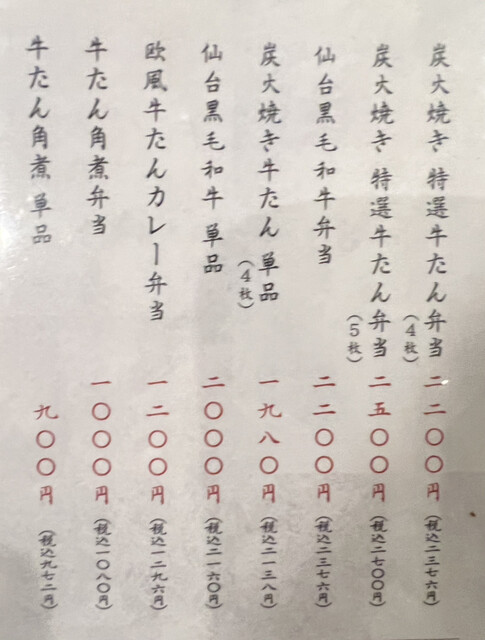 炭火焼き 特選牛たん弁当(4枚) 二二〇〇円(税込二三七六円)
炭火焼き 特選牛たん弁当(5枚) 二五〇〇円(税込二七〇〇円)
仙台黒毛和牛弁当 二二〇〇円(税込二三七六円)
炭火焼き牛たん 単品(4枚) 一九八〇円(税込二一三八円)
仙台黒毛和牛 単品 二〇〇〇円(税込二一六〇円)
欧風牛たんカレー弁当 一二〇〇円(税込一二九六円)
牛たん角煮弁当 一〇〇〇円(税込一〇八〇円)
牛たん角煮 単品 九〇〇円(税込九七二円)